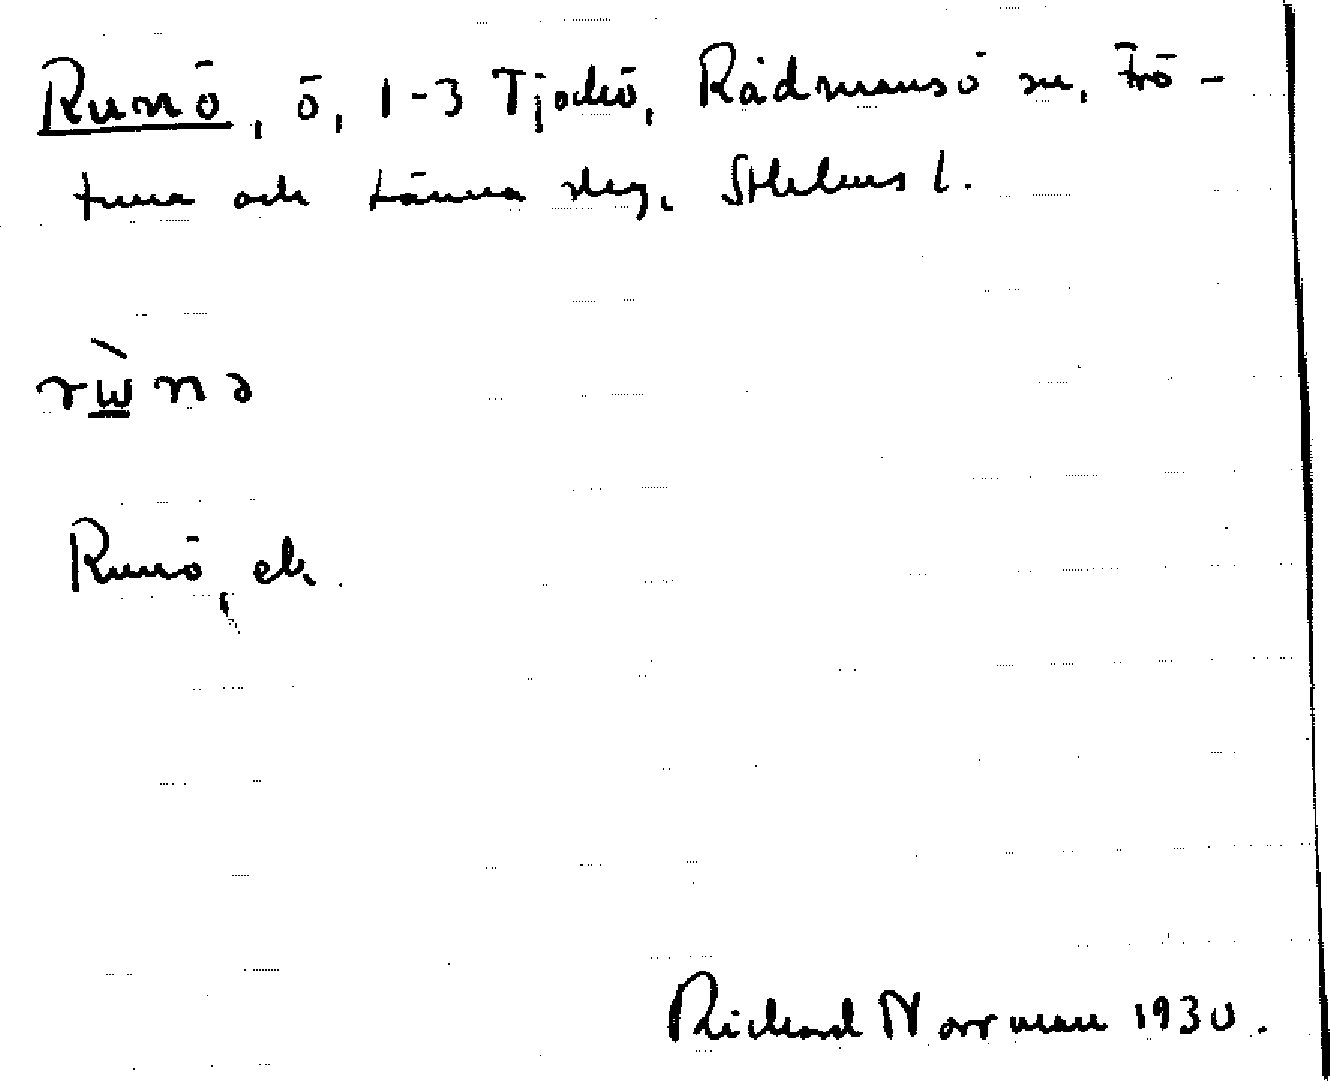 Runö, ö, 1-3 Tjockö, Rådmansö sn, Frö-
tuna och Länna slg, Sthlms l.
rɯ̀nə
Runö, ek.
Richard Norrman 1930.